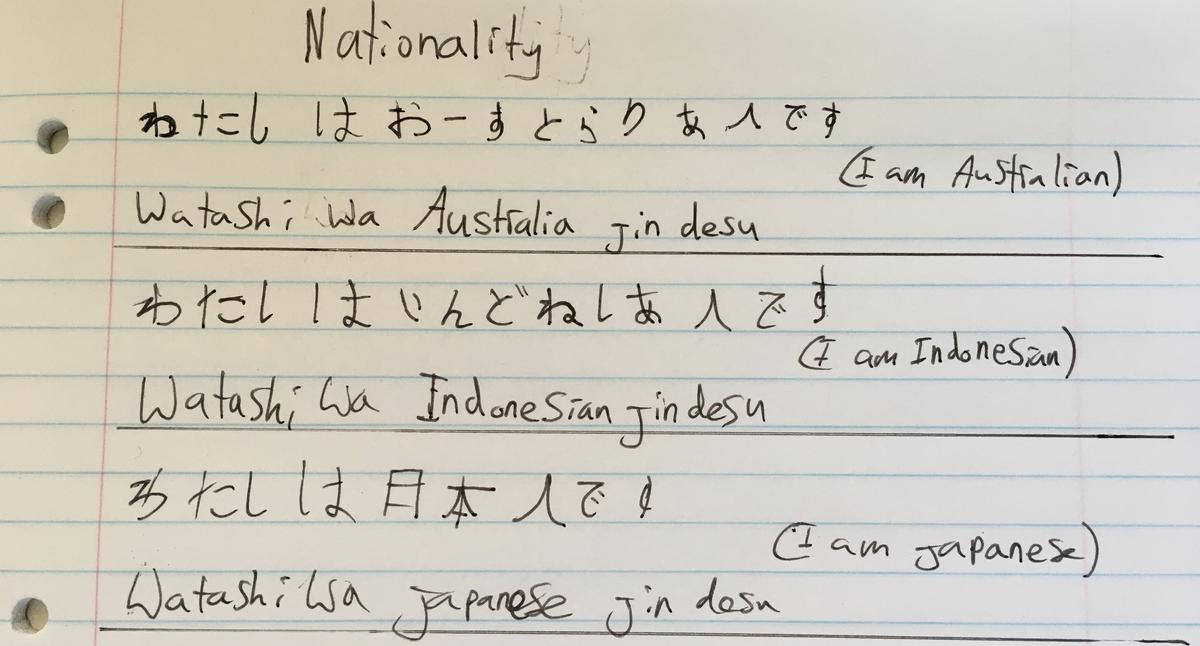 Nationality
わたし は おーすとらりあ人です
(I am Australian)
Watashi wa Australia jin desu
わたし はいんどねしあ 人です
(I am Indonesian)
Watashi wa Indonesian jin desu
わたし は 日本人です
(I am japanese)
Watashi wa japanese jin desu